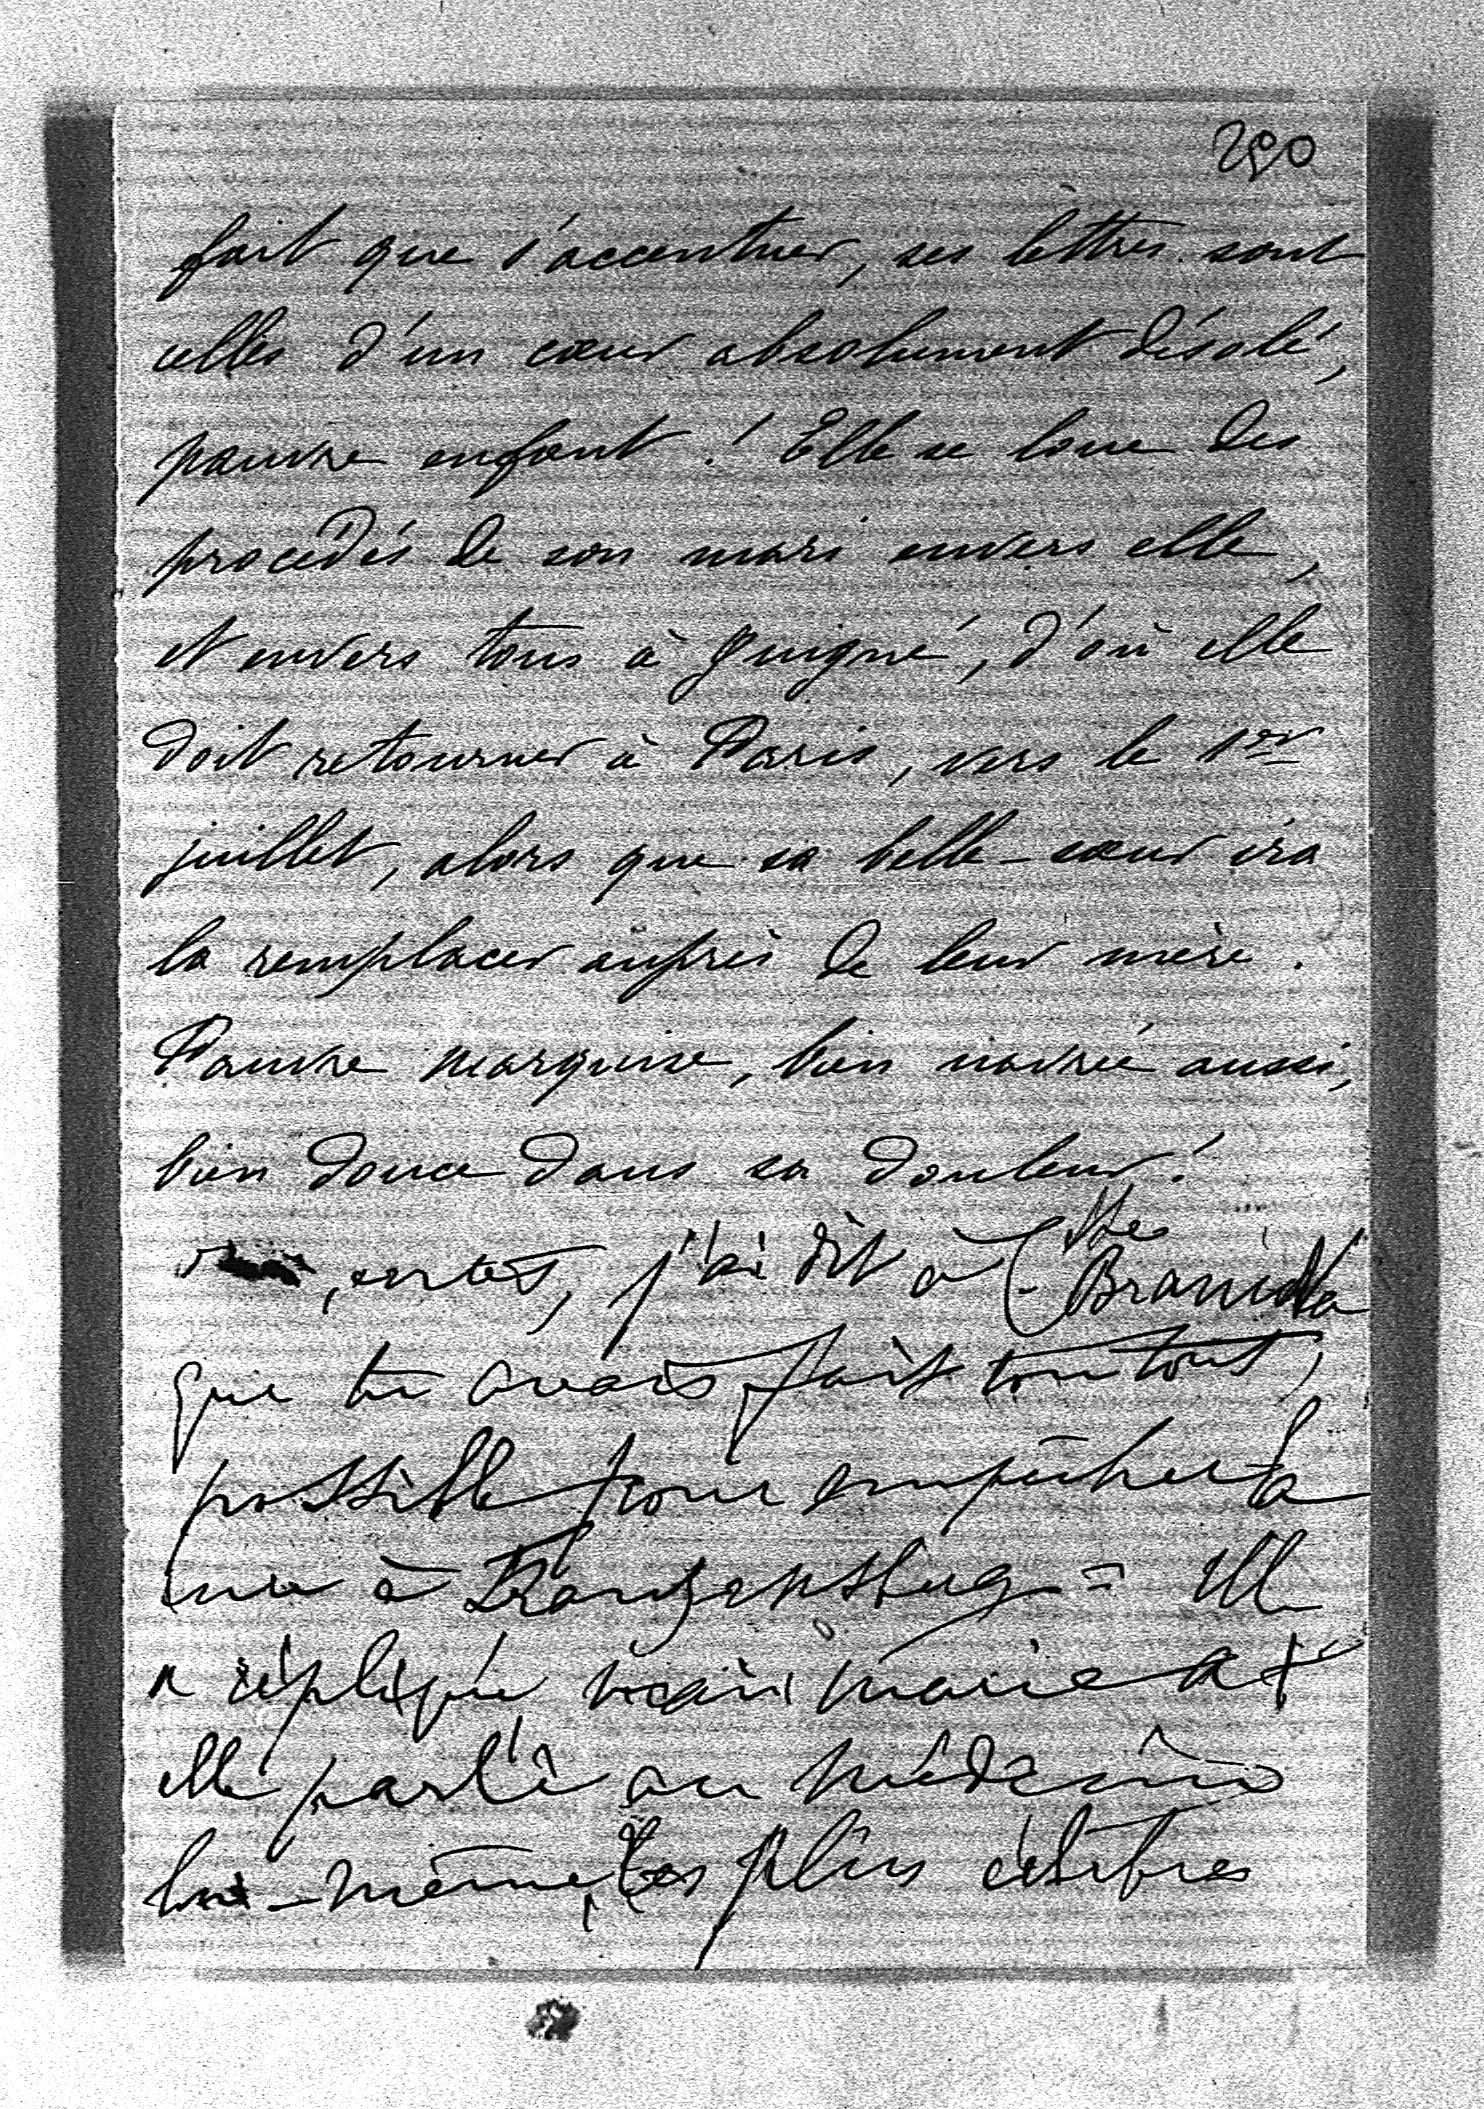 290
fait que s'accentuer, ses lettres sont
celles d'un cœur absolument désolé,
pauvre enfant ! Elle se loue des
procédés de son mari envers elle,
et envers tous à Guigné, d'où elle
doit retourner à Paris, vers le 1er
juillet, alors que sa belle-sœur ira
la remplacer auprès de leur mère.
Pauvre marquise, bien navrée aussi,
bien douce dans sa douleur !
certes, j'ai dit à Ctesse
que tu avais fait ton tout
possible pour empêcher la
cure à Franzensbad = Elle
a répliqué mais Marie a t
elle parlé au médecin
lui-même, les plus célèbres